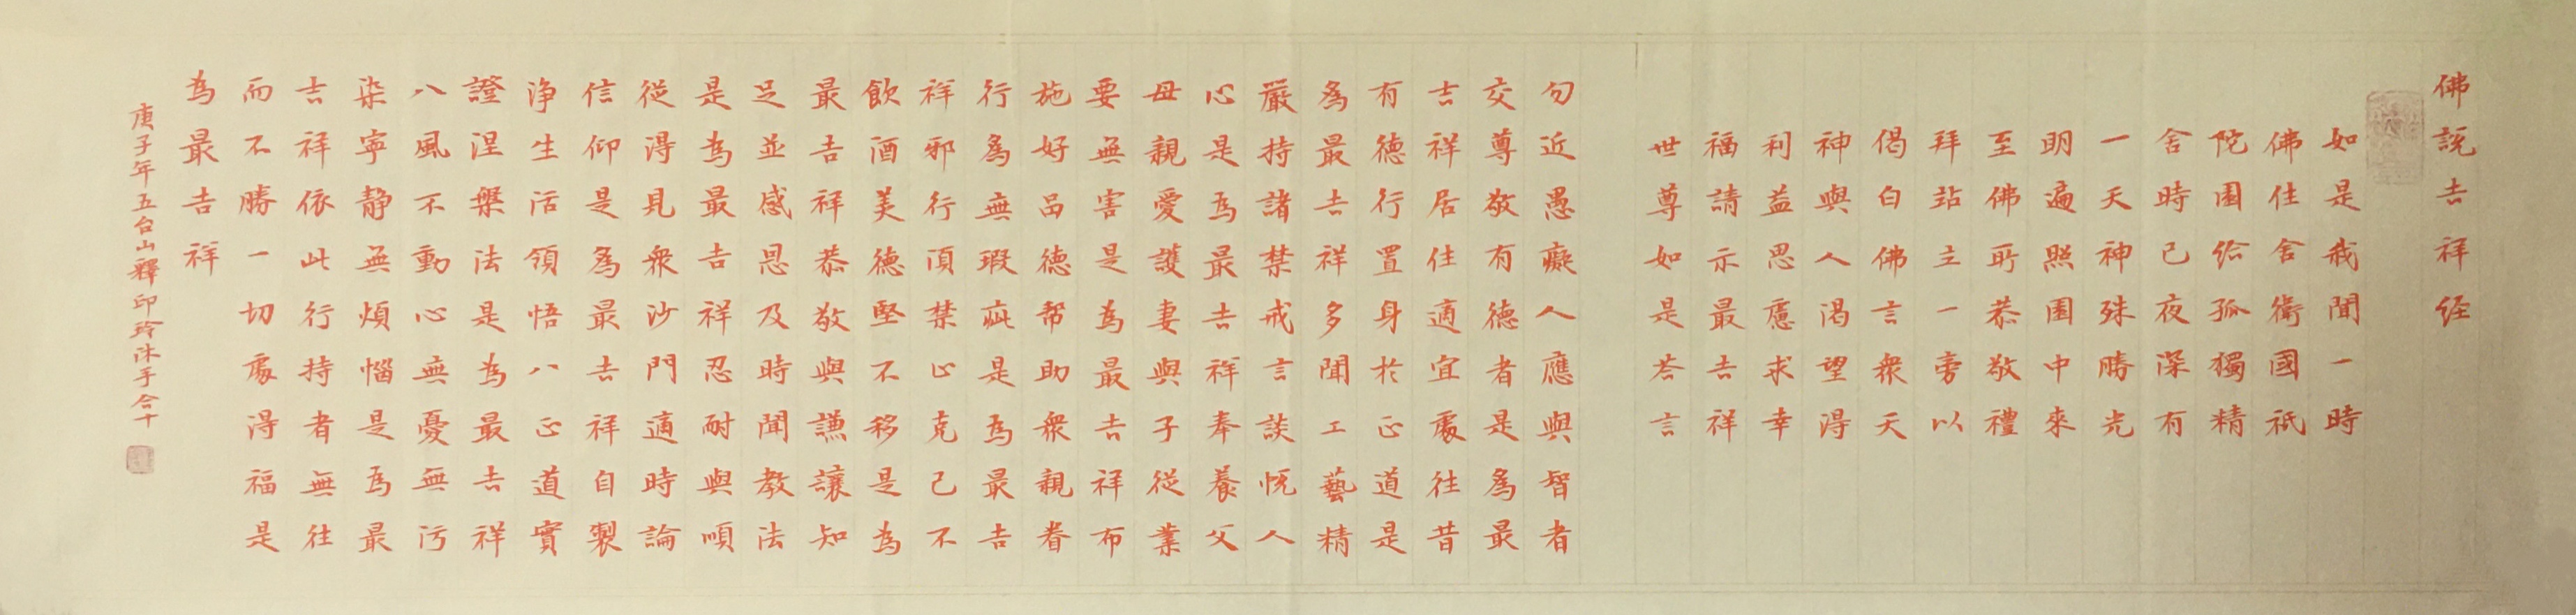 佛説吉祥经
如是我聞一時
佛住舍衛國祇
陀園给孤獨精
舍時已夜深有
一天神殊勝光
明遍照園中來
至佛所恭敬禮
拜站立一旁以
偈白佛言衆天
神與人渴望得
利益思慮求幸
福請示最吉祥
世尊如是荅言
勿近愚癡人應與智者
交尊敬有德者是為最
吉祥居住適宜處往昔
有德行置身於正道是
為最吉祥多聞工藝精
嚴持諸禁戒言談悦人
心是為最吉祥奉養父
母親愛護妻與子從業
要無害是為最吉祥布
施好品德帮助衆親眷
行為無瑕疵是為最吉
祥邪行須禁止克己不
飲酒美德堅不移是為
最吉祥恭敬與謙讓知
足並感恩及時聞教法
是為最吉祥忍耐與順
從得見衆沙門適時論
信仰是為最吉祥自製
浄生活領悟八正道實
證涅槃法是為最吉祥
八風不動心無憂無污
染寧静無煩惱是為最
吉祥依此行持者無往
而不勝一切處得福是
為最吉祥
庚子年五台山釋印玲沐手合十